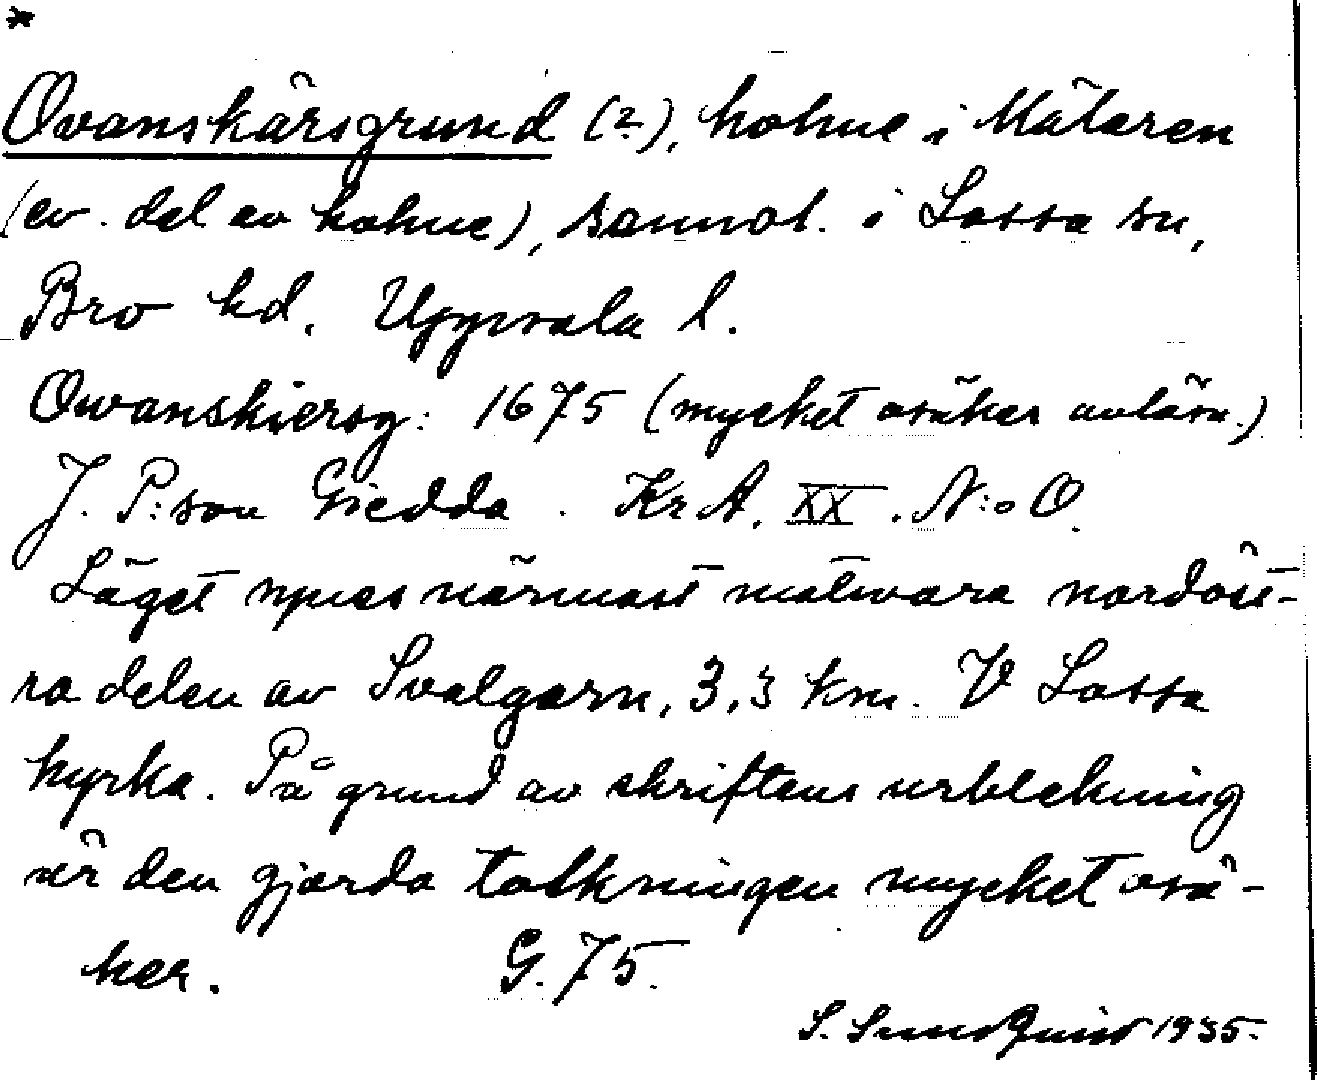 *
Ovanskärsgrund (?), holme i Mälaren
(ev. del av holme), sannol. i Lossa sn,
Bro hd. Uppsala l.
Owanskiersg: 1675 (mycket osäker avläsn.)
J. P:son Giedda. KrA. XX. N:o O.
Läget synes närmast motsvara nordöst-
ra delen av Svalgarn, 3,3 km. V Lossa
kyrka. På grund av skriftens urblekning
är den gjorda tolkningen mycket osä-
ker. G. 75.
S. Sundquist 1935.